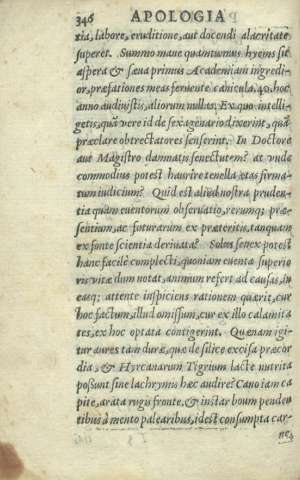 346 APOLOGIA
tia, labore, eruditione, aut docendi alacritate
superet. Summo mane quantumuis hyems sit
aspera & sæua primus Academiam ingredi-
or, præfationes meas feruente canicula, 40. hoc
anno audiuistis, aliorum nullas. Ex quo intelli-
getis, quā vere id de sexagenario dixerint, quā
præclare obtrectatores senserint. In Doctore
aut Magistro damnatis senectutem? at vnde
commodius potest haurire tenella ætas firma-
tum iudicium? Quid est aliud nostra pruden-
tia quàm euentorum obseruatio, rerumq; præ-
sentium, ac futurarum ex præteritis, tanquam
ex fonte scientia deriuata? Solus senex potest
hanc facilè complecti, quoniam euenta superio
ris vitæ dum notat, animum refert ad causas, in
easq; attente inspiciens rationem quærit, cur
hoc factum, illud omissum, cur ex illo calamita
tes, ex hoc optata contigerint. Quænam igi-
tur aures tam duræ, quæ de silice excisa præcor
dia, & Hyrcanarum Tigrium lacte nutrita
possunt sine lachrymis hæc audire? Cano iam ca
pite, arata rugis fronte, & instar boum penden
tibus à mento palearibus, idest consumpta car-
ne,